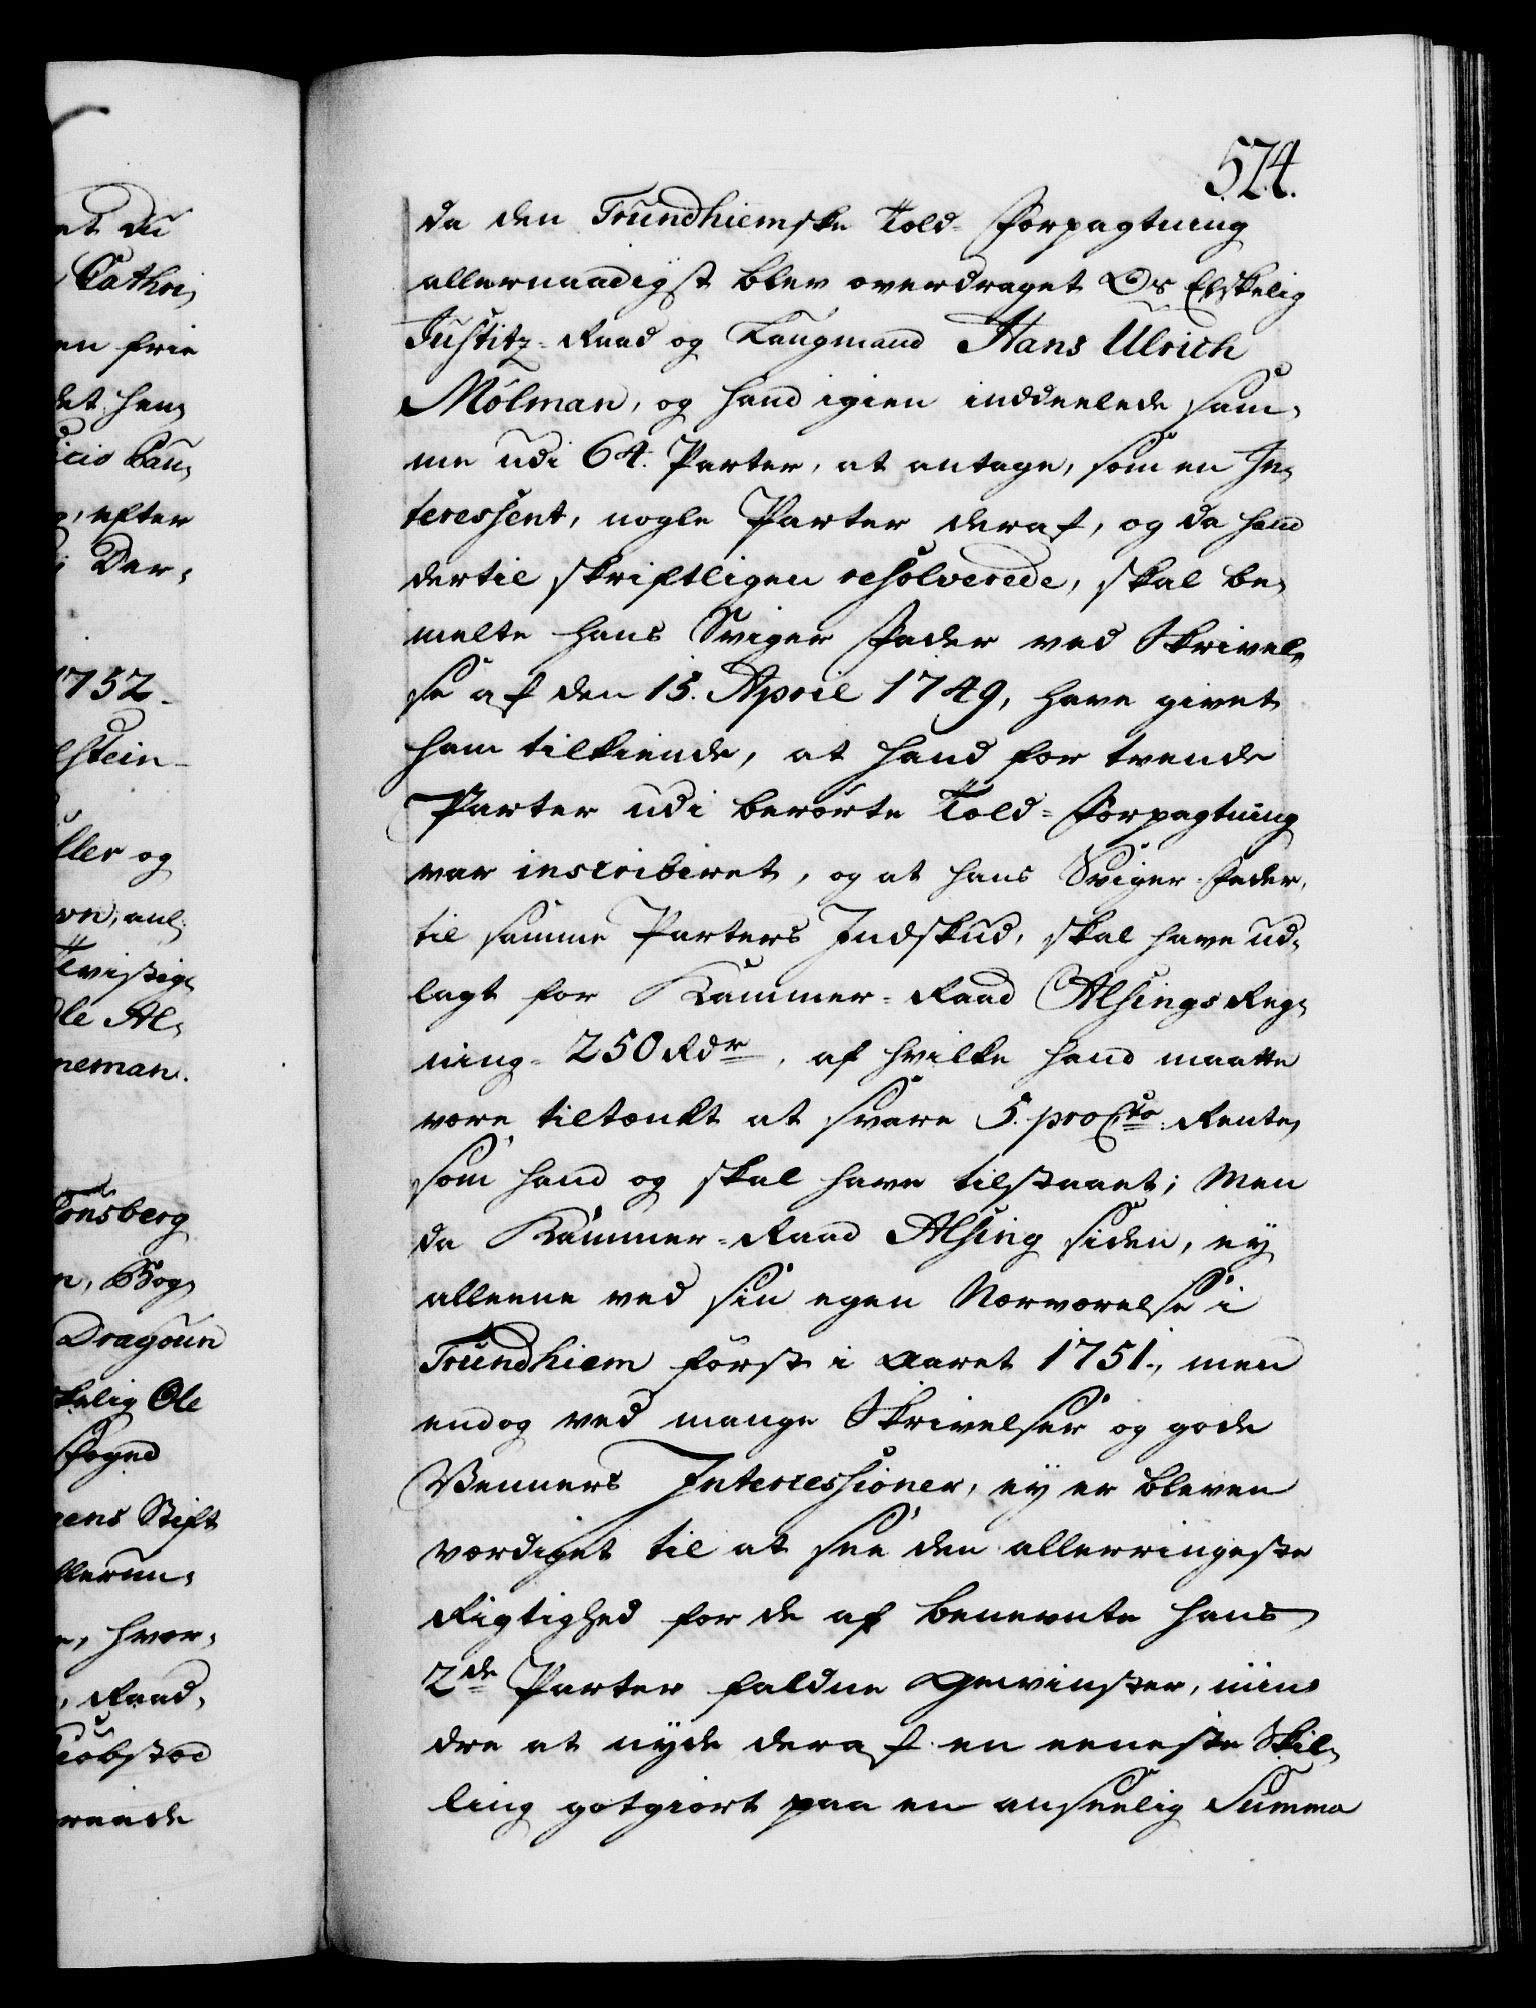 574.
da den Trundhiemske Told-Forpagtning
allernaadigst blev overdraget Os Elskelig
Justitz-Raad og Laugmand Hans Ulrich
Mölman, og hand igien inddeelede sam-
me udi 64. Parter, at antage, som en In-
teressent, nogle Parter deraf, og da hand
dertil skriftligen resolverede, skal be-
melte hans Sviger Fader ved Skrivel-
se af den 15. April 1749, have givet
ham tilkiende, at hand for tvende
Parter udi berørte Told-Forpagtning
var inscribiret, og at hans Sviger-Fader,
til samme Parters Indskud, skal have ud-
lagt for Kammer-Raad Alsings Reg-
ning 250 Rdr, af hvilke hand maatte
være tiltænkt at svare 5. pro Cto Rente,
som hand og skal have tilstaaet; Men
da Kammer-Raad Alsing siden, ey
alleene ved sin egen Nærværelse i
Trundhiem først i Aaret 1751., men
endog ved mange Skrivelser og gode
Venners Intercessioner, ey er bleven
værdiget til at see den allerringeste
Rigtighed for de af benevnte hans
2de Parter faldne Gevinster, min-
dre at nyde deraf en eeneste Skil-
ling gotgiort paa en anseelig Summa
et du
Cathri-
en frie
det hen-
icio Cau-
, efter
Der-
1752
lstein-
ller og
vn, anl:
Tvistig-
dle Al-
neman.
onsberg
n, Bog-
Dragoun
kelig Ole
Foged
gens Stift
llerun-
e, hvor-
, Raad,
iöbstæd
reede